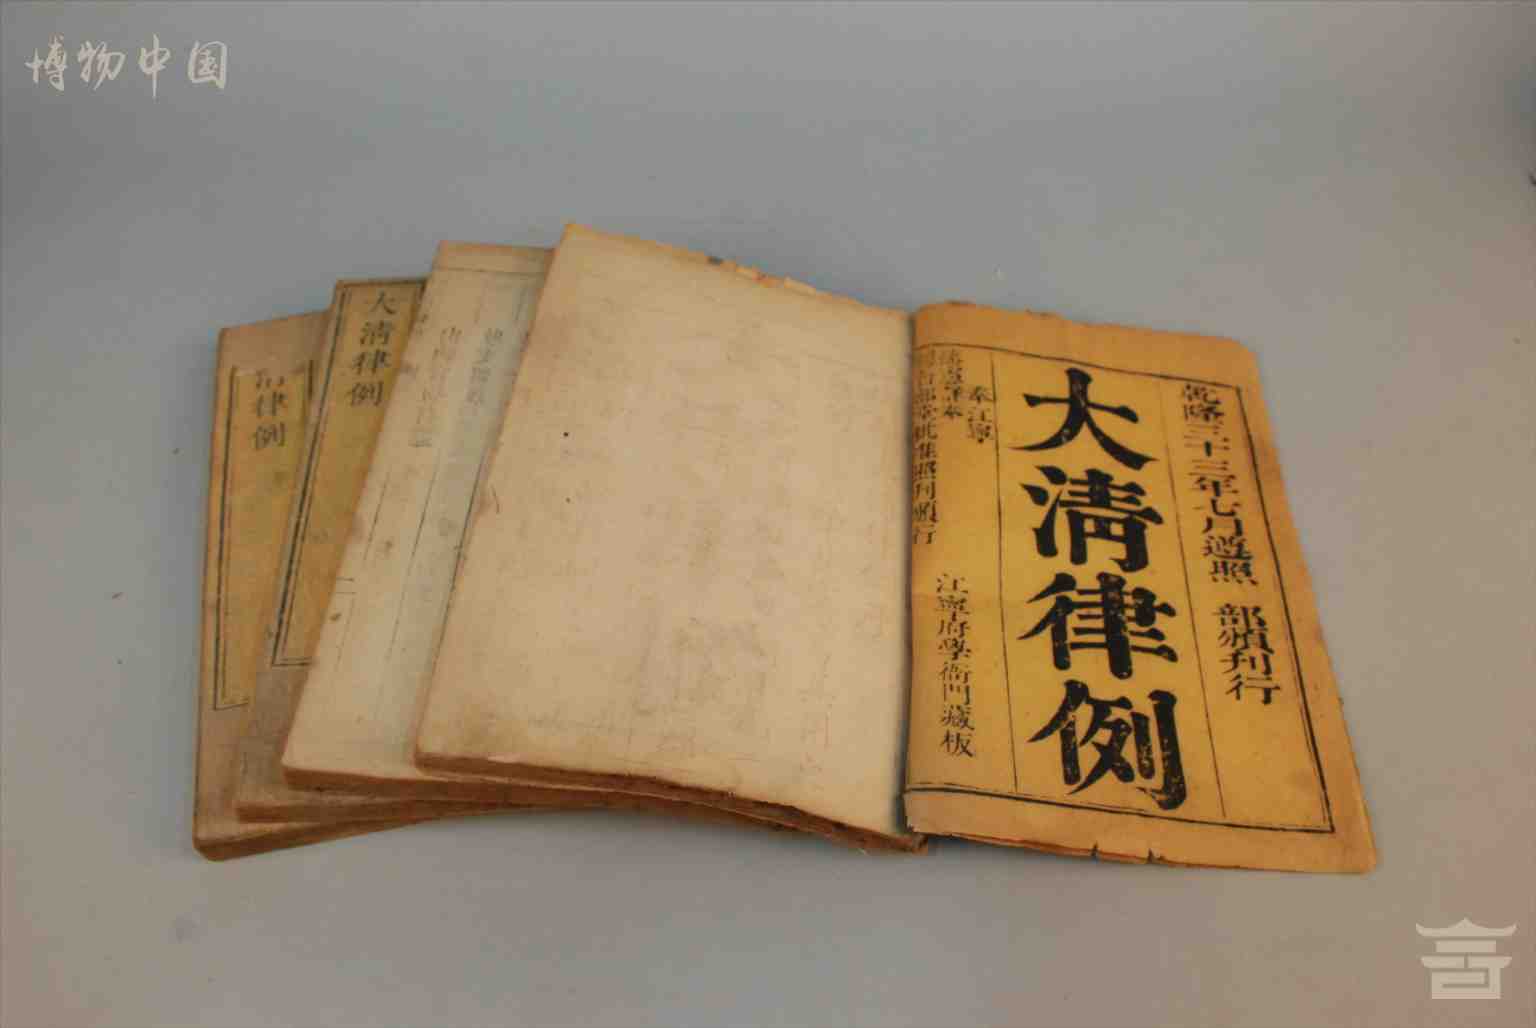 博物中国
乾隆三十三年七月遵照 部頒刊行
大清律例
奉江寧
江寧府學衙門藏板
大清律例
律例